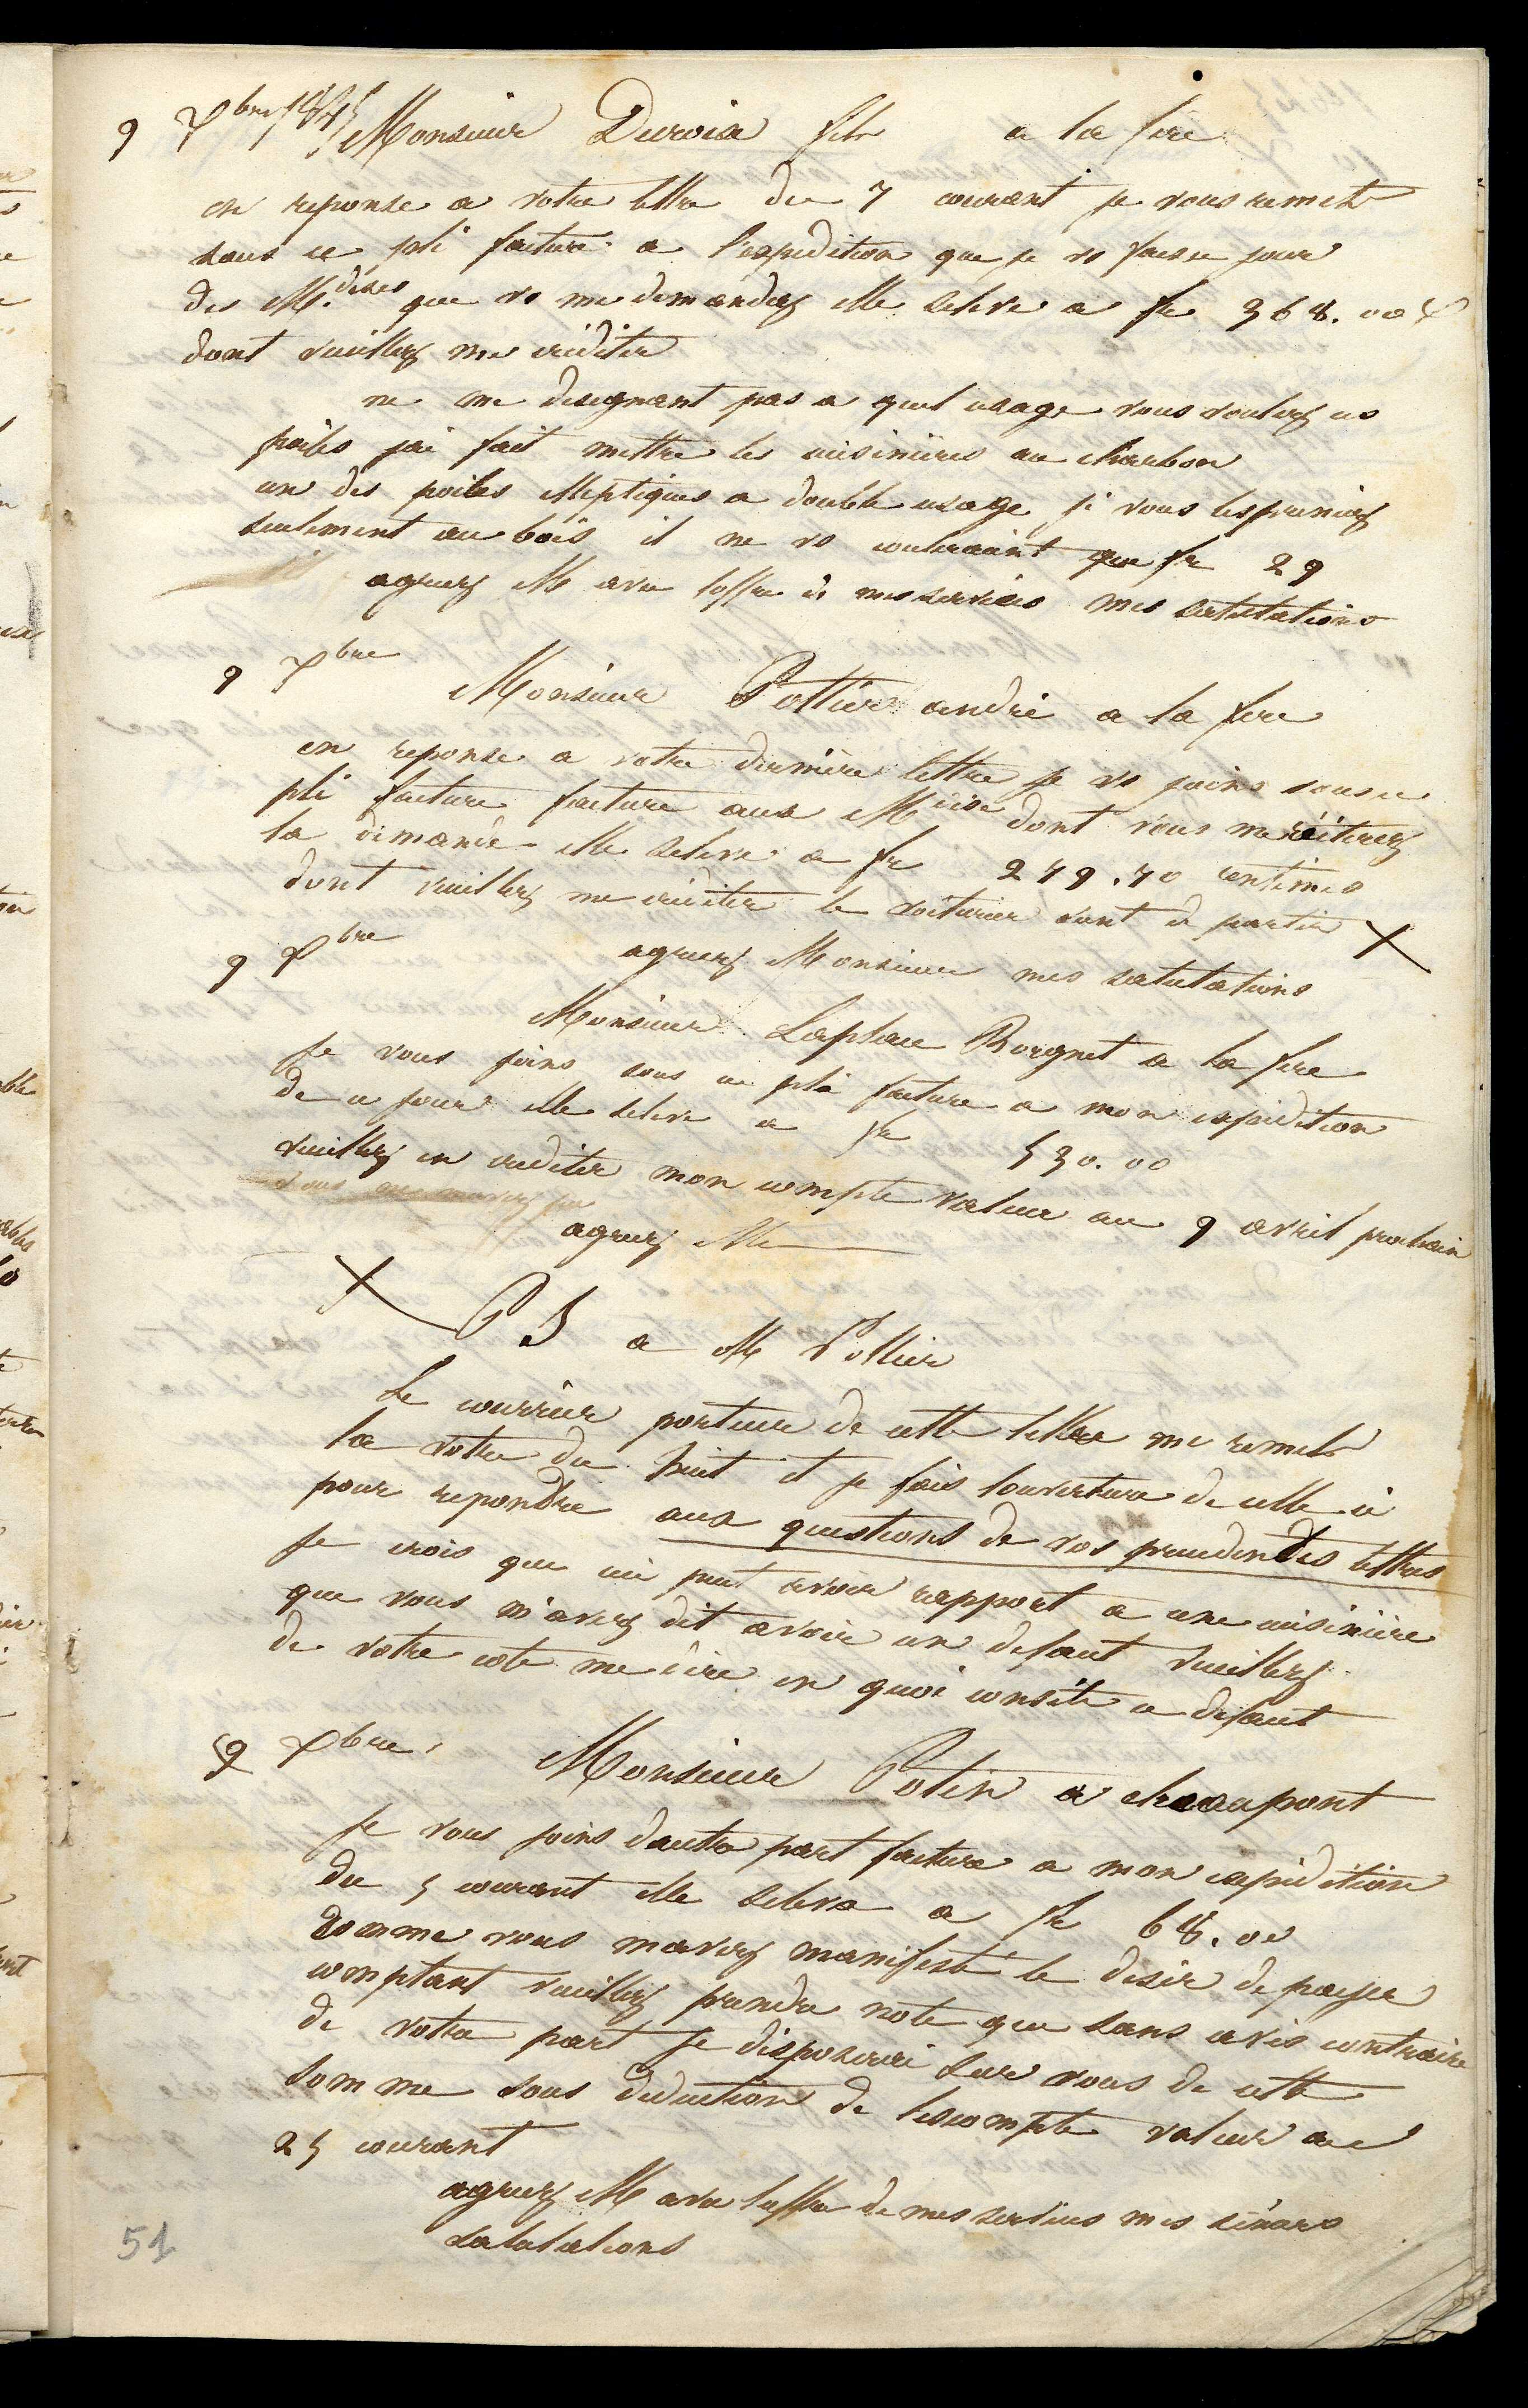 9 Xbre 1845 Monsieur Duroix fils a la fere
en reponse a votre lettre du 7 courant je vous remets
sous ce pli facture a l'expedition que je vs fais ce jour
des Mdises que vs me demandez elle seleve a fr 368.00
dont veuillez me créditer
ne me designant pas a quel usage vous vouliez ces
poiles jai fait mettre les cuisinières au charbon
un des poiles elleptiques a double usage si vous les preniez
seulement au bois il ne vs couteraint que fr 29
agreez M avec loffre de mes services mes salutations
9 Xbre
Monsieur Pottier andré a la fere
en reponse a votre dernière lettre je vs joins sous ce
pli facture facture aux Mdise dont vous me réiterez
la demande elle seleve a fr 249.40 centimes
dont veuillez me créditer le voiturier vient de partir X
agreez Monsieur mes salutations
9 Xbre
Monsieur Laplace Borgnet a la fere
Je vous joins sous ce pli facture a mon expédition
de ce jour elle seleve a fr 530.00
veuillez en crediter mon compte valeur au 9 avril prochain
agreez M
X PS a M Pottier
Le courrier porteur de cette lettre me remets
la votre du huit et je fais louverture de celle ci
pour repondre aux questions de vos precedentes lettres
Je crois que ceci peut avoir rapport a une cuisinière
que vous m'avez dit avoir un defaut veuillez
de votre coté me dire en quoi consite ce defaut
9 Xbre Monsieur Potin a chaaupont
Je vous joins dautre part facture a mon expédition
du 5 courant elle seleva a fr 68.00
Comme vous mavez manifesté le desir de payer
comptant veuillez prendre note que sans avis contraire
de votre part je disposerai sur vous de cette
somme sous deduction de lescompte valeur au
25 courant
agreez M avec loffre de mes services mes sincares
salutations
51